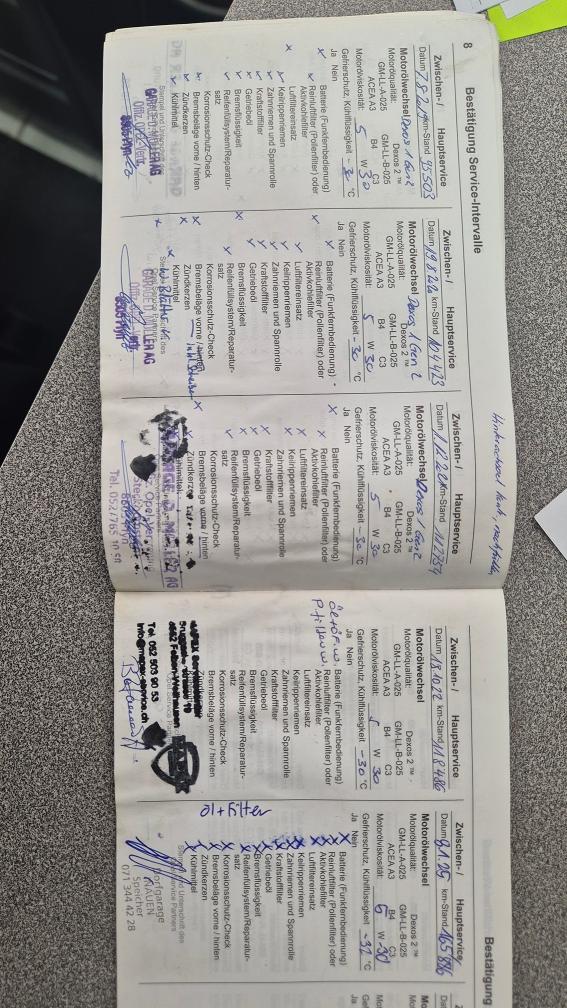 8 Bestätigung Service-Intervalle
Zwischen-/ Hauptservice
Datum 7.8.2019 km-Stand 95503
Motorölwechsel Dexos 1 Gen 2
Motorölqualität: Dexos 2 ™
GM-LL-A-025 GM-LL-B-025
ACEA A3 B4 C3
Motorölviskosität: 5 W 30
Gefrierschutz, Kühlflüssigkeit -30 °C
Ja Nein
Batterie (Funkfernbedienung)
Reinluftfilter (Pollenfilter) oder
Aktivkohlefilter
Luftfiltereinsatz
Keilrippenriemen
Zahnriemen und Spannrolle
Kraftstofffilter
Getriebeöl
Bremsflüssigkeit
Reifenfüllsystem/Reparatur-
satz
Korrosionsschutz-Check
Bremsbeläge vorne / hinten
Zündkerzen
Kühlmittel
Hinterachse
Zwischen-/ Hauptservice
Datum 19.8.20 km-Stand 104423
Motorölwechsel Dexos 1 Gen 2
Motorölqualität: Dexos 2 ™
GM-LL-A-025 GM-LL-B-025
ACEA A3 B4 C3
Motorölviskosität: 5 W 30
Gefrierschutz, Kühlflüssigkeit -30 °C
Ja Nein
Batterie (Funkfernbedienung)
Reinluftfilter (Pollenfilter) oder
Aktivkohlefilter
Luftfiltereinsatz
Keilrippenriemen
Zahnriemen und Spannrolle
Kraftstofffilter
Getriebeöl
Bremsflüssigkeit
Reifenfüllsystem/Reparatur-
satz
Korrosionsschutz-Check
Bremsbeläge vorne / hinten
Zündkerzen
Kühlmittel
Zwischen-/ Hauptservice
km-Stand 112754
Motorölwechsel Dexos 1 Gen 2
Motorölqualität: Dexos 2 ™
GM-LL-A-025 GM-LL-B-025
ACEA A3 B4 C3
Motorölviskosität: 5 W 30
Gefrierschutz, Kühlflüssigkeit -30 °C
Ja Nein
Batterie (Funkfernbedienung)
Reinluftfilter (Pollenfilter) oder
Aktivkohlefilter
Luftfiltereinsatz
Keilrippenriemen
Zahnriemen und Spannrolle
Kraftstofffilter
Getriebeöl
Bremsflüssigkeit
Reifenfüllsystem/Reparatur-
satz
Korrosionsschutz-Check
Bremsbeläge vorne / hinten
Zündkerzen
Tel. 052/765
Zwischen-/ Hauptservice
Datum 18.10.23 km-Stand 118486
Motorölwechsel
Motorölqualität: Dexos 2 ™
GM-LL-A-025 GM-LL-B-025
ACEA A3 B4 C3
Motorölviskosität: 5 W 30
Gefrierschutz, Kühlflüssigkeit -30 °C
Ja Nein
Batterie (Funkfernbedienung)
Reinluftfilter (Pollenfilter) oder
Aktivkohlefilter
Luftfiltereinsatz
Keilrippenriemen
Zahnriemen und Spannrolle
Kraftstofffilter
Getriebeöl
Bremsflüssigkeit
Reifenfüllsystem/Reparatur-
satz
Korrosionsschutz-Check
Bremsbeläge vorne / hinten
Zündkerzen
Tel. 052 503 90 53
Bestätigung
Zwischen-/ Hauptservice
Datum 9.1.25 km-Stand 165886
Motorölwechsel
Motorölqualität: Dexos 2 ™
GM-LL-A-025 GM-LL-B-025
ACEA A3 B4 C3
Motorölviskosität: 5 W 30
Gefrierschutz, Kühlflüssigkeit -32 °C
Ja Nein
Batterie (Funkfernbedienung)
Reinluftfilter (Pollenfilter) oder
Aktivkohlefilter
Luftfiltereinsatz
Keilrippenriemen
Zahnriemen und Spannrolle
Kraftstofffilter
Getriebeöl
Bremsflüssigkeit
Reifenfüllsystem/Reparatur-
satz
Korrosionsschutz-Check
Bremsbeläge vorne / hinten
Zündkerzen
Kühlmittel
Öl + Filter
Speicher
071 344 42 28